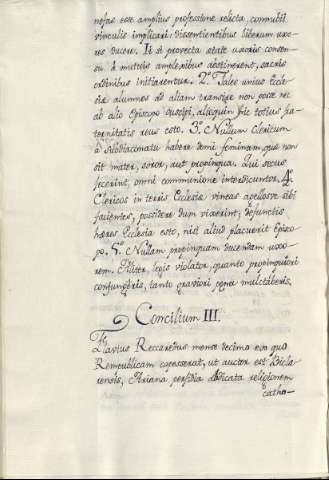 nefas esse amplius professione relicta, connubii
vinculis implicari: dissentientibus liberum uxo-
res ducere. It si provecta etate uxoris consen-
su à mutuis amplexibus abstinerent, sacris
ordinibus initiarentur. 2.º Tales unius Eccle-
siæ alumnos ad aliam transire non posse nec
ab alio Episcopo suscipi, alioquin hic totius fra-
ternitatis reus esto. 3.º Nullum Clericum
à Subdiaconatu habere domi feminam, quæ non
sit mater, soror, aut propinqua. Qui secus
fecerint, omni communione interdicuntor. 4.º
Clericos in terris Ecclesiæ vineas apellosve sibi
facientes, possidere dum vixerint; defunctis
hæres Ecclesia esto, nisi aliud placuerit Episco-
po. 5.º Nullam propinquam ducendam uxo-
rem. Aliter, legis violator, quanto propinquiori
conjungeris, tanto graviori pœna mulctaberis.
Concilium III.
Flavius Reccaredus mense decimo quo
Rempublicam capesserat, ut auctor est Bicla-
rensis, Ariana perfidia abdicata religionem
catho-